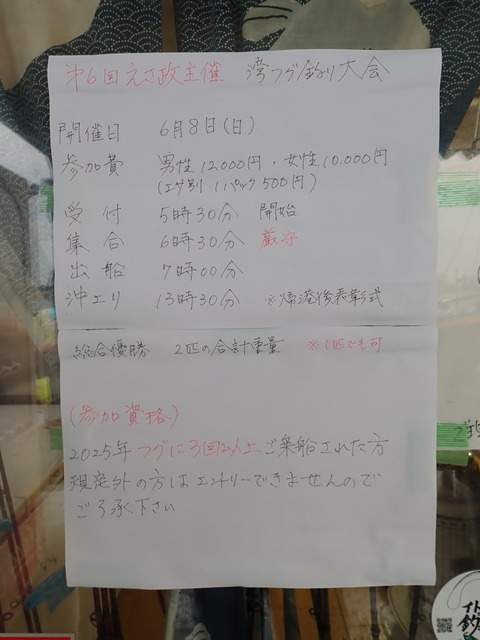 第6回えさ政主催 湾フグ釣り大会
開催日 6月8日(日)
参加費 男性12,000円・女性10,000円
(エサ別 1パック500円)
受付 5時30分 開始
集合 6時30分 厳守
出船 7時00分
沖上り 13時30分 ※帰港後表彰式
総合優勝 2匹の合計重量 ※1匹でも可
(参加資格)
2025年フグに3回以上ご乗船された方
規定外の方はエントリーできませんので
ご了承下さい